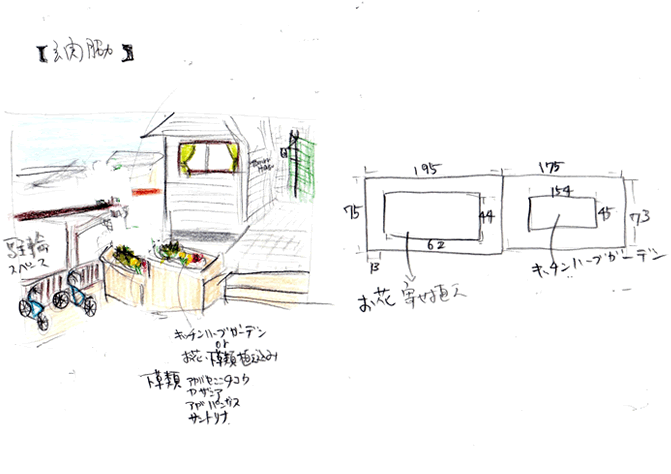 【玄関脇】
駐輪
スペース
キッチンハーブガーデン
or
お花、下草類植え込み
下草類
ガザニア
アガパンサス
サントリナ
195
175
75
44
62
13
154
45
73
お花 寄せ植え
キッチンハーブガーデン